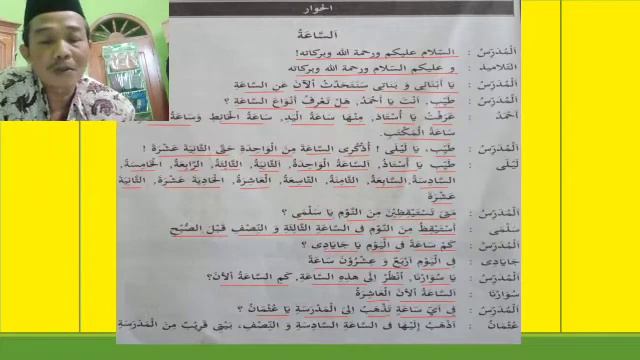 الحوار
اَلسَّاعَةُ
اَلْمُدَرِّسُ : اَلسَّلَام عليكم ورحمة الله وبركاته!
التلاميذ : و عليكم السلام ورحمة الله وبركاته
اَلْمُدَرِّسُ : يَا أَبْنَائِى وَ بَنَاتِى سَنَتَحَدَّثُ اَلْآنَ عَنِ السَّاعَةِ
اَلْمُدَرِّسُ : طَيِّب. اَنْتَ يَا أَحْمَدُ، هَلْ تَعْرِفُ أَنْوَاعَ السَّاعَةِ ؟
اَحْمَدُ : عَرَفْتُ يَا أُسْتَاذُ، مِنْهَا سَاعَةُ الْيَدِ، سَاعَةُ الْحَائِطِ وَسَاعَةُ
سَاعَةُ الْمَكْتَبِ.
اَلْمُدَرِّسُ : طَيِّب، يَا لَيْلَى ! اُذْكُرِى السَّاعَةَ مِنَ الْوَاحِدَةِ حَتَّى الثَّانِيَةَ عَشْرَةَ !
لَيْلَى : طَيِّب يَا أُسْتَاذُ، اَلسَّاعَةُ الْوَاحِدَةُ، الثَّانِيَةُ، الثَّالِثَةُ، الرَّابِعَةُ، الْخَامِسَةُ،
السَّادِسَةُ، السَّابِعَةُ، الثَّامِنَةُ، التَّاسِعَةُ، الْعَاشِرَةُ، الْحَادِيَةَ عَشْرَةَ، الثَّانِيَةَ
عَشْرَةَ
اَلْمُدَرِّسُ : مَتَى تَسْتَيْقِظِيْنَ مِنَ النَّوْمِ يَا سَلْمَى ؟
سَلْمَى : اَسْتَيْقِظُ مِنَ النَّوْمِ فِى السَّاعَةِ الثَّالِثَةِ وَ النِّصْفِ قَبْلَ الصُّبْحِ
اَلْمُدَرِّسُ : كَمْ سَاعَةً فِى الْيَوْمِ يَا جَايَادِى ؟
جَايَادِى : فِى الْيَوْمِ اَرْبَعٌ وَ عِشْرُوْنَ سَاعَةً
اَلْمُدَرِّسُ : يَا سُوَارْنَا، اُنْظُرْ اِلَى هَذِهِ السَّاعَةِ. كَمِ السَّاعَةُ اَلْآنَ؟
سُوَارْنَا : اَلسَّاعَةُ اَلْآنَ الْعَاشِرَةُ
اَلْمُدَرِّسُ : فِى اَيِّ سَاعَةٍ تَذْهَبُ اِلَى الْمَدْرَسَةِ يَا عُثْمَانُ ؟
عُثْمَانُ : اَذْهَبُ اِلَيْهَا فِى السَّاعَةِ السَّادِسَةِ وَ النِّصْفِ، بَيْتِى قَرِيْبٌ مِنَ الْمَدْرَسَةِ